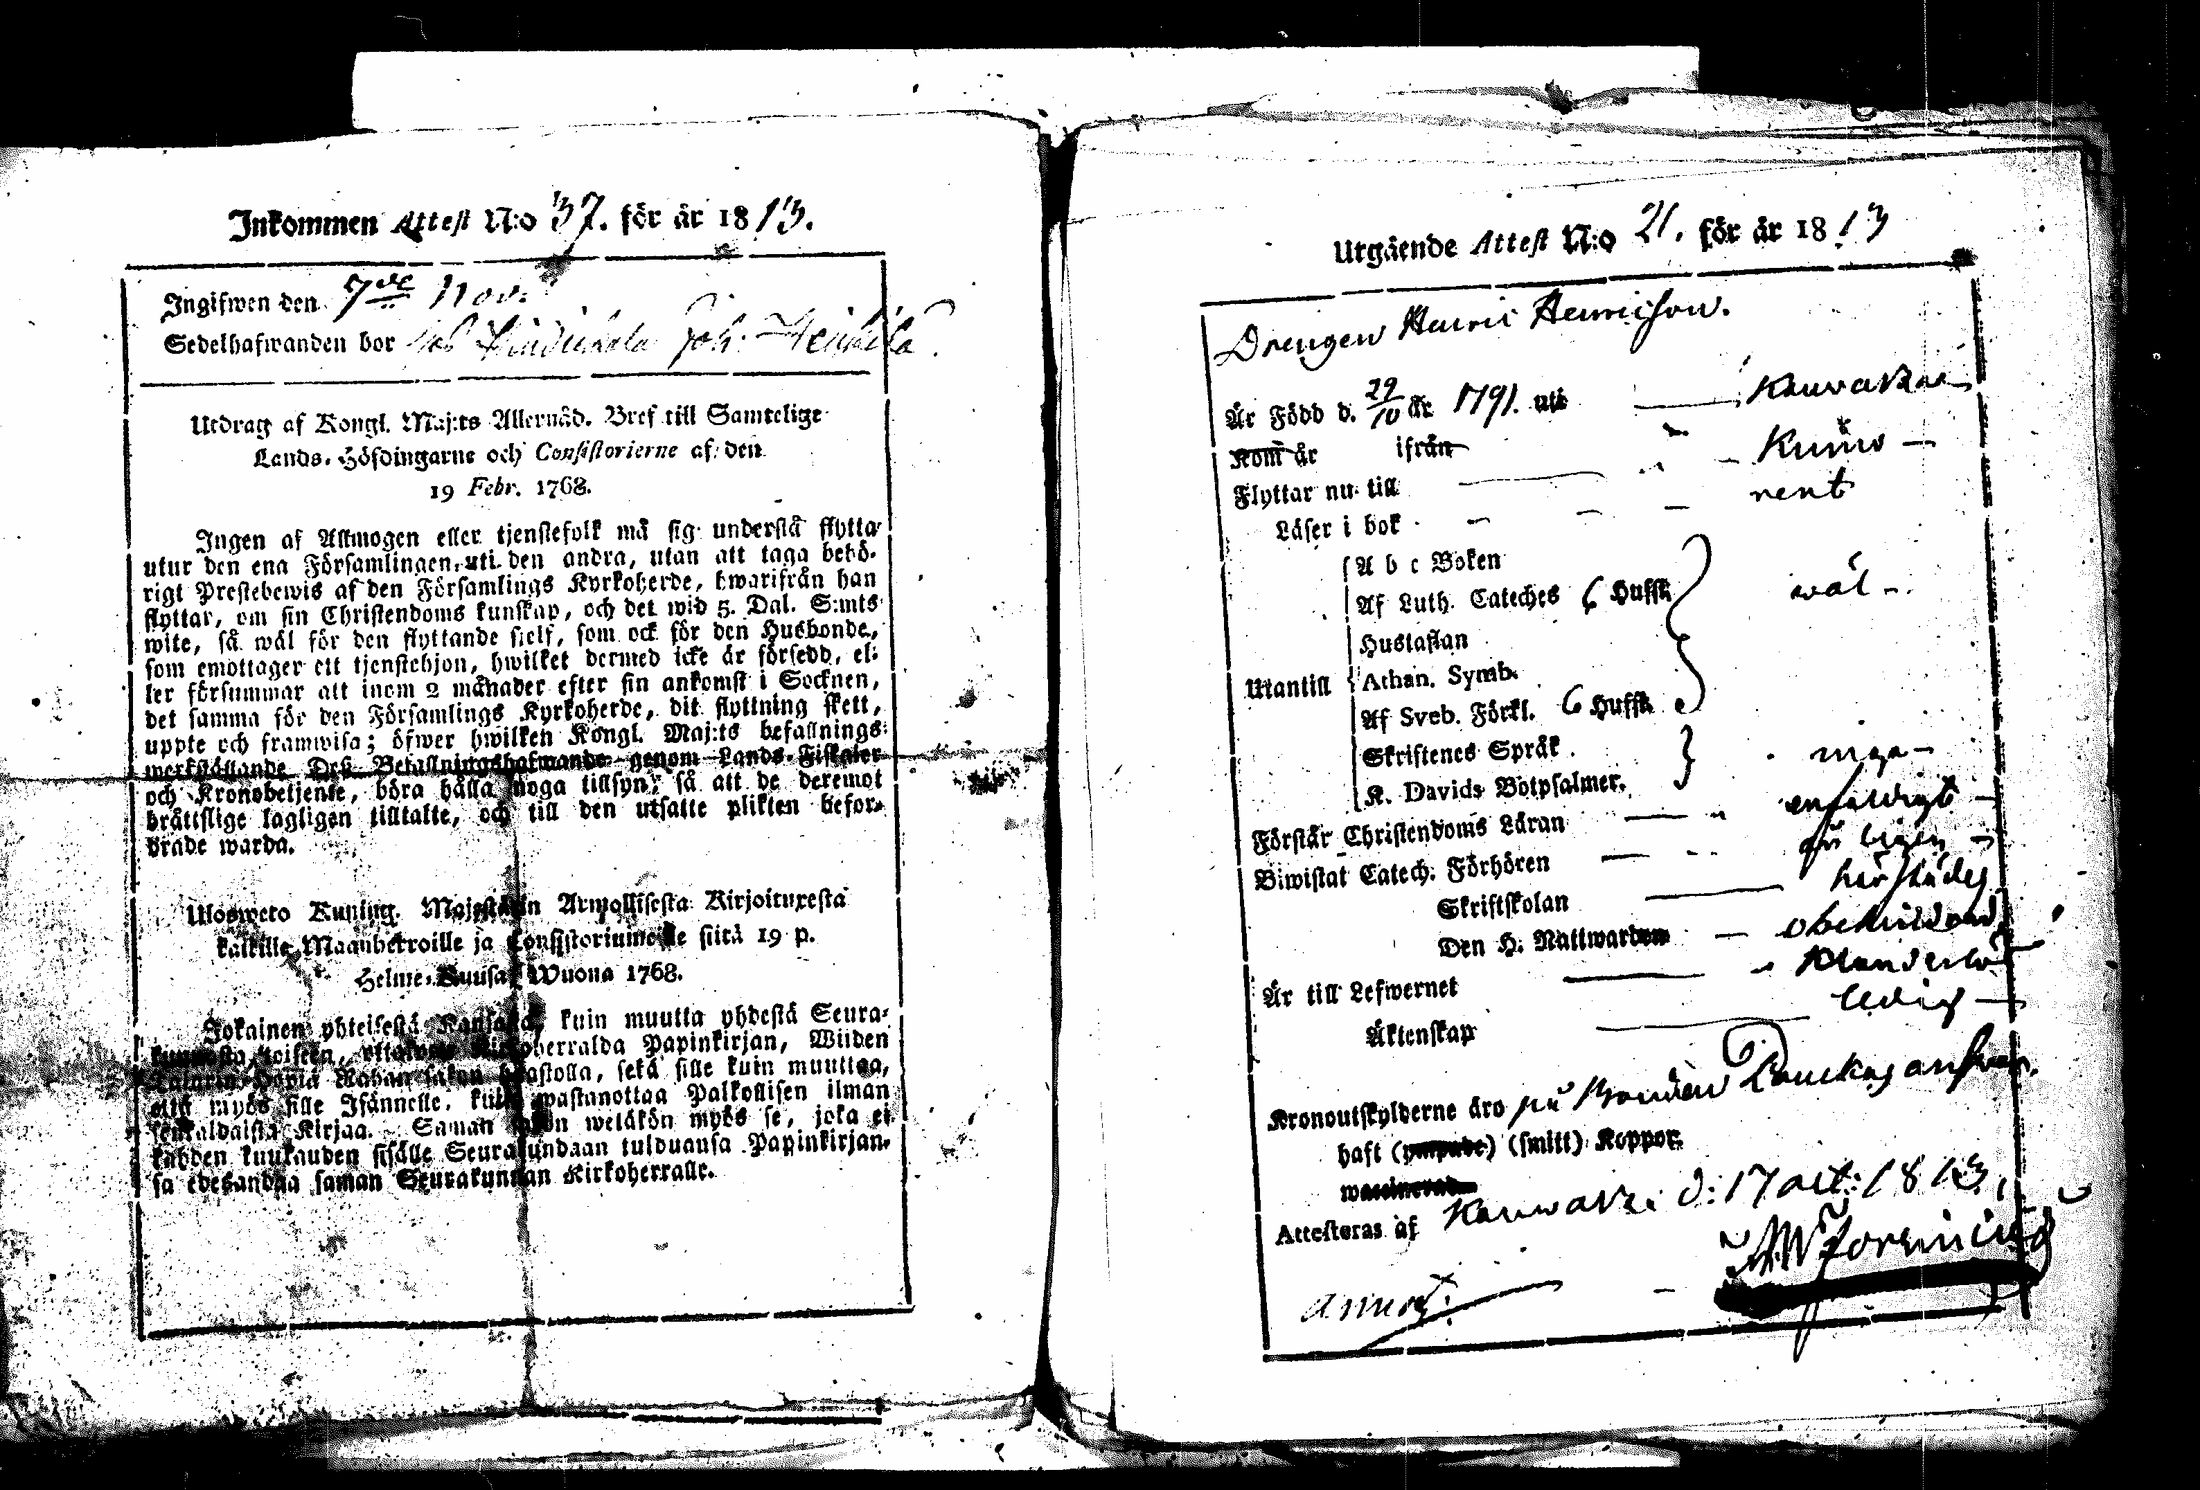 Inkommen Attest N:o 37. för år 1813.
Ingifwen den 7de Nov.
Sedelhafwanden bor hos Joh. Heikilä.
Utdrag af Kongl. Maj:ts Allernåd. Bref till Samtelige
Lands-Höfdingarne och Consistorierne af den
19 Febr. 1768.
Ingen af Allmogen eller tjenstefolk må sig understå flytta
utur den ena Församlingen uti den andra, utan att taga behö-
rigt Prestebewis af den Församlings Kyrkoherde, hwarifrån han
flyttar, om sin Christendoms kunskap, och det wid 5. Dal. S:mts
wite, så wäl för den flyttande sielf, som ock för den Husbonde,
som emottager ett tjenstehjon, hwilket dermed icke är försedd, el-
ler försummar att inom 2 månader efter sin ankomst i Socknen,
det samma för den Församlings Kyrkoherde, dit flyttning skett,
uppte och framwisa; öfwer hwilken Kongl. Maj:ts befallnings
werkställande Deß Befallningshafwande genom Lands-Fiskaler
och Kronobetjente, böra hålla noga tillsyn; så att de deremot
brättslige lagligen tilltalte, och till den utsatte plikten befor-
drade warda.
Ulosweto Kuning. Majestätin Armollisesta Kirjoituxesta
kaikille Maanherroille ja Consistoriumeille siitä 19 p.
Helme-Kuusa Wuona 1768.
Jokainen yhteisestä Kansasta, kuin muutta yhdestä Seura-
kunnasta toiseen, ottakoon Kirkoherralda Papinkirjan, Wiiden
Talarin Hopia Rahan sakon haastolla, sekä sille kuin muuttaa,
että myös sille Isännelle, kuin wastanottaa Palkollisen ilman
senkaldaista Kirjaa. Saman sakon weläkön myös se, joka ei
kahden kuukauden sisälle Seurakundaan tulduansa Papinkirjan-
sa edesandaa saman Seurakunnan Kirkoherralle.
Utgående Attest N:o 21. för år 1813
Drengen Henric Henricsson.
Är Född d. 29/10 år 1791. uti Kauvatza
Kom år ifrån
Flyttar nu till Kumo
Läser i bok rent
A b c Boken
Af Luth. Cateches 6 Hufst. wäl
Hustaflan
Utantill Athan. Symb.
Af Sveb. Förkl. 6 Hufst.
Skriftenes Språk
K. Davids Botpsalmer. inga
Förstår Christendoms Läran enfaldigt
Biwistat Catech. Förhören
Skriftskolan härstädes
Den H. Nattwarden obehindrad
Är till Lefwernet klanderlös
Äktenskap ledig
Kronoutskylderne äro på Bonden
haft (ympade) (smitt) Koppor.
waccinerad
Attesteras af Kauvatza d: 17 oct: 1813,